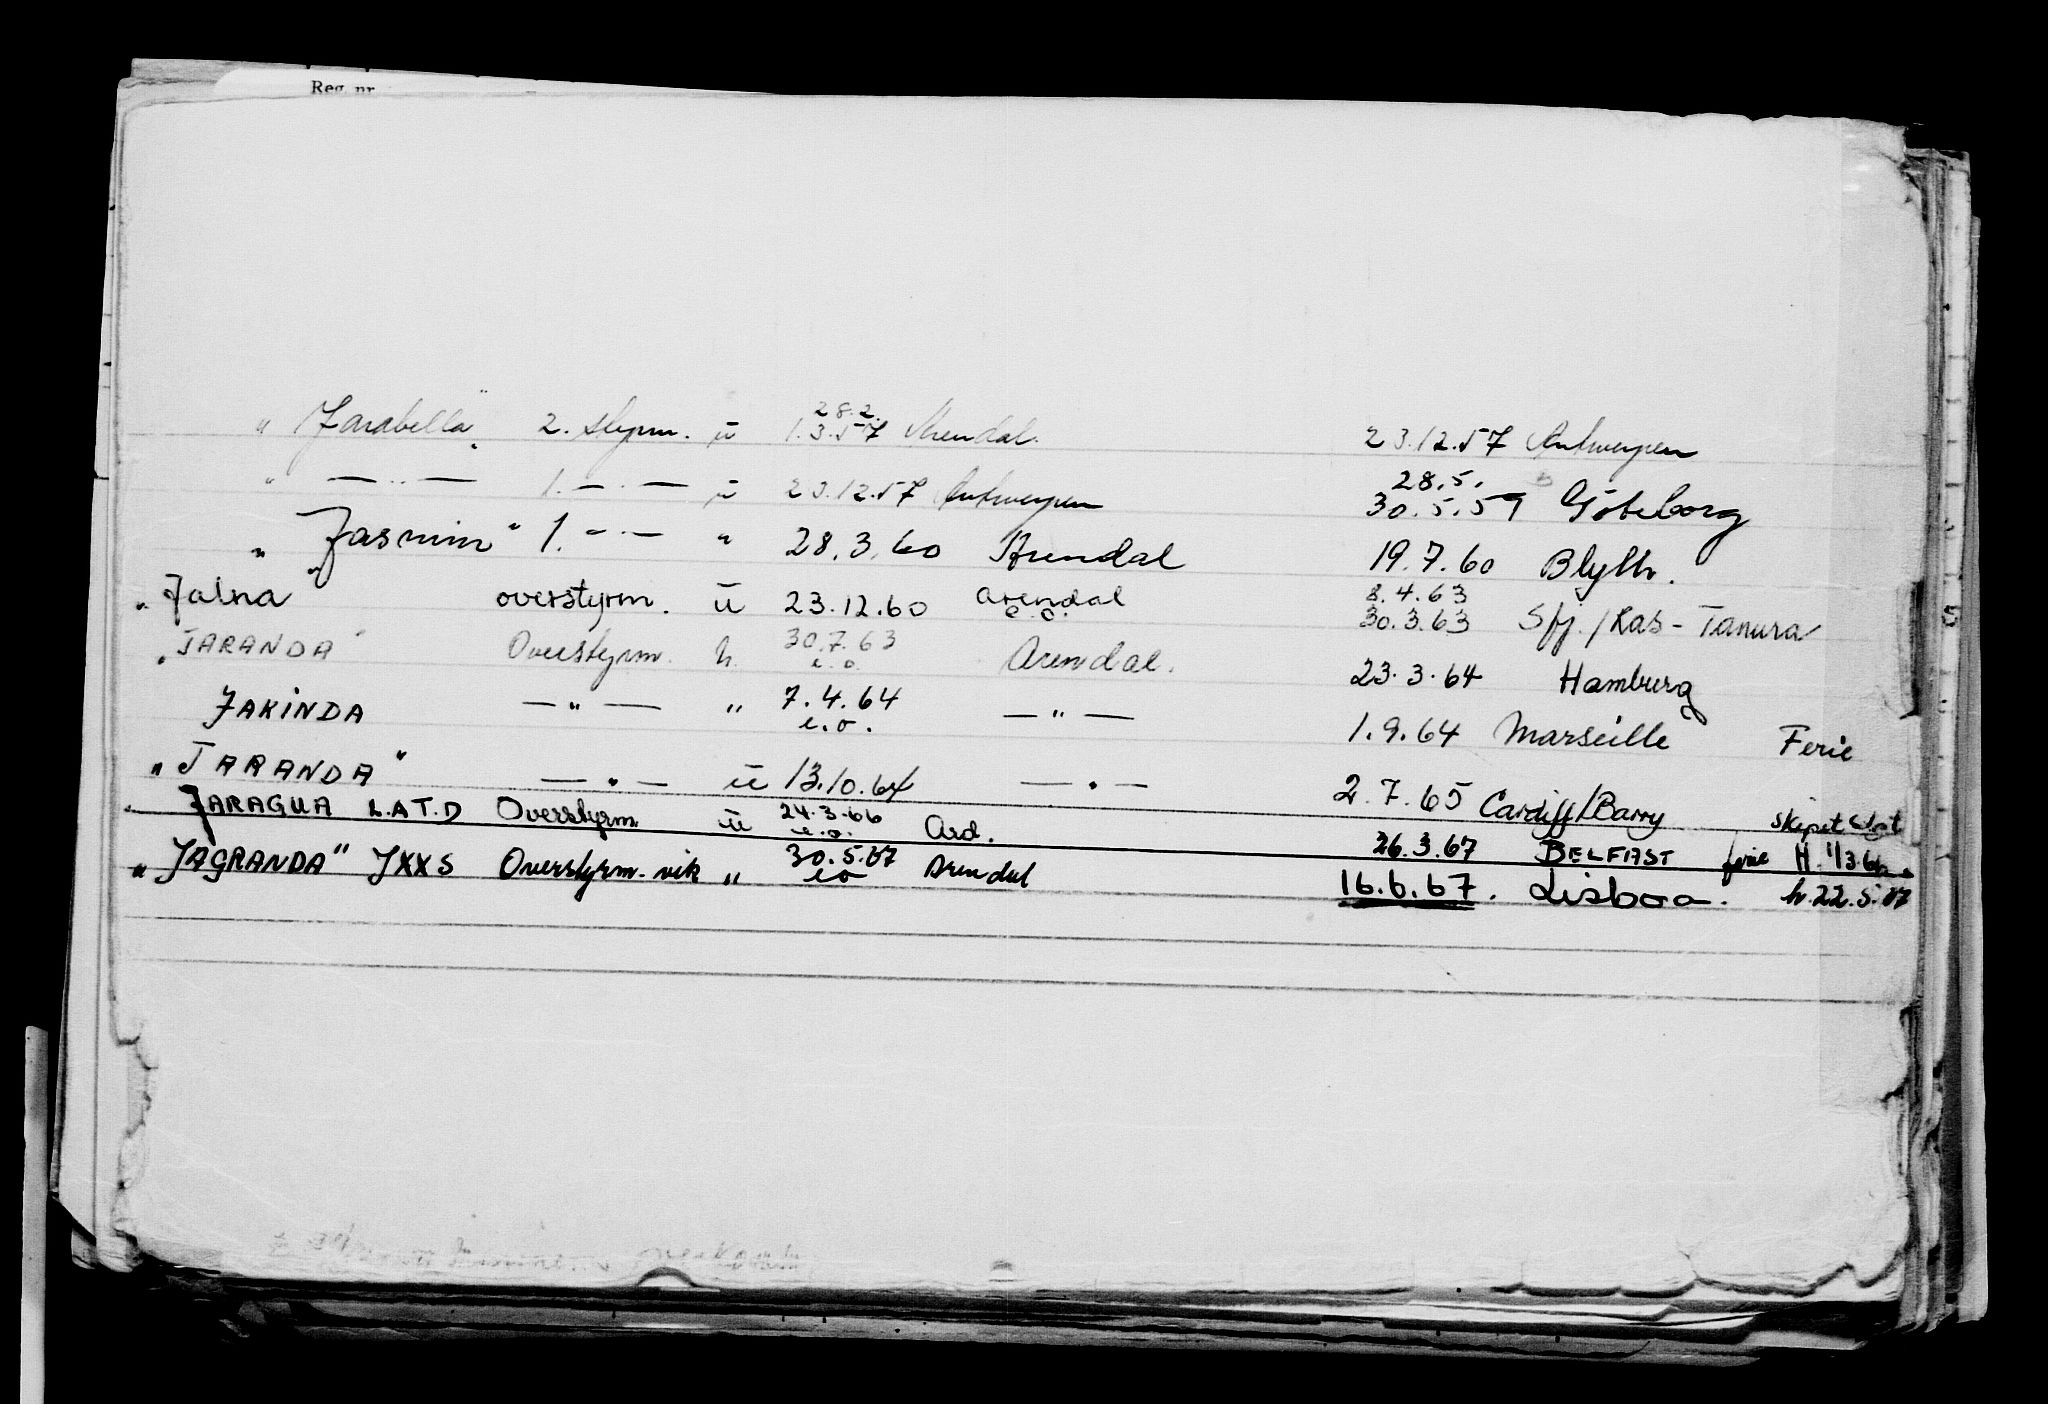 Reg. nr
28.2.
" Jarabella" 2. styrm. ü 1.3.57 Arendal. 23.12.57 Antwerpen
" — " — 1. — " — ü 23.12.57 Antwerpen 28.5. 30.5.59 Göteborg
" Jasmin" 1. — " — " 28.3.60 Arendal 19.7.60 Blyth.
8.4.63
"Jalna" overstyrm. ü 23.12.60 Arendal e.o. 30.3.63 Sfj./Ras-Tanura
"JARANDA" Overstyrm. h. 30.7.63 e.o. Arendal. 23.3.64 Hamburg
JAKINDA — " — " 7.4.64 e.o. — " — 1.9.64 Marseille Ferie
"JARANDA" — " — ü 13.10.64 — " — 2.7.65 Cardiff/Barry skipet solgt
JARAGUA L.A.T.D Overstyrm. ü 24.3.66 e.o. Ard. 26.3.67 BELFAST ferie H. 1/3.66.
"JAGRANDA" JXXS Overstyrm. vik " 30.5.67 e o Arendal 16.6.67. Lisboa. h. 22.5.67